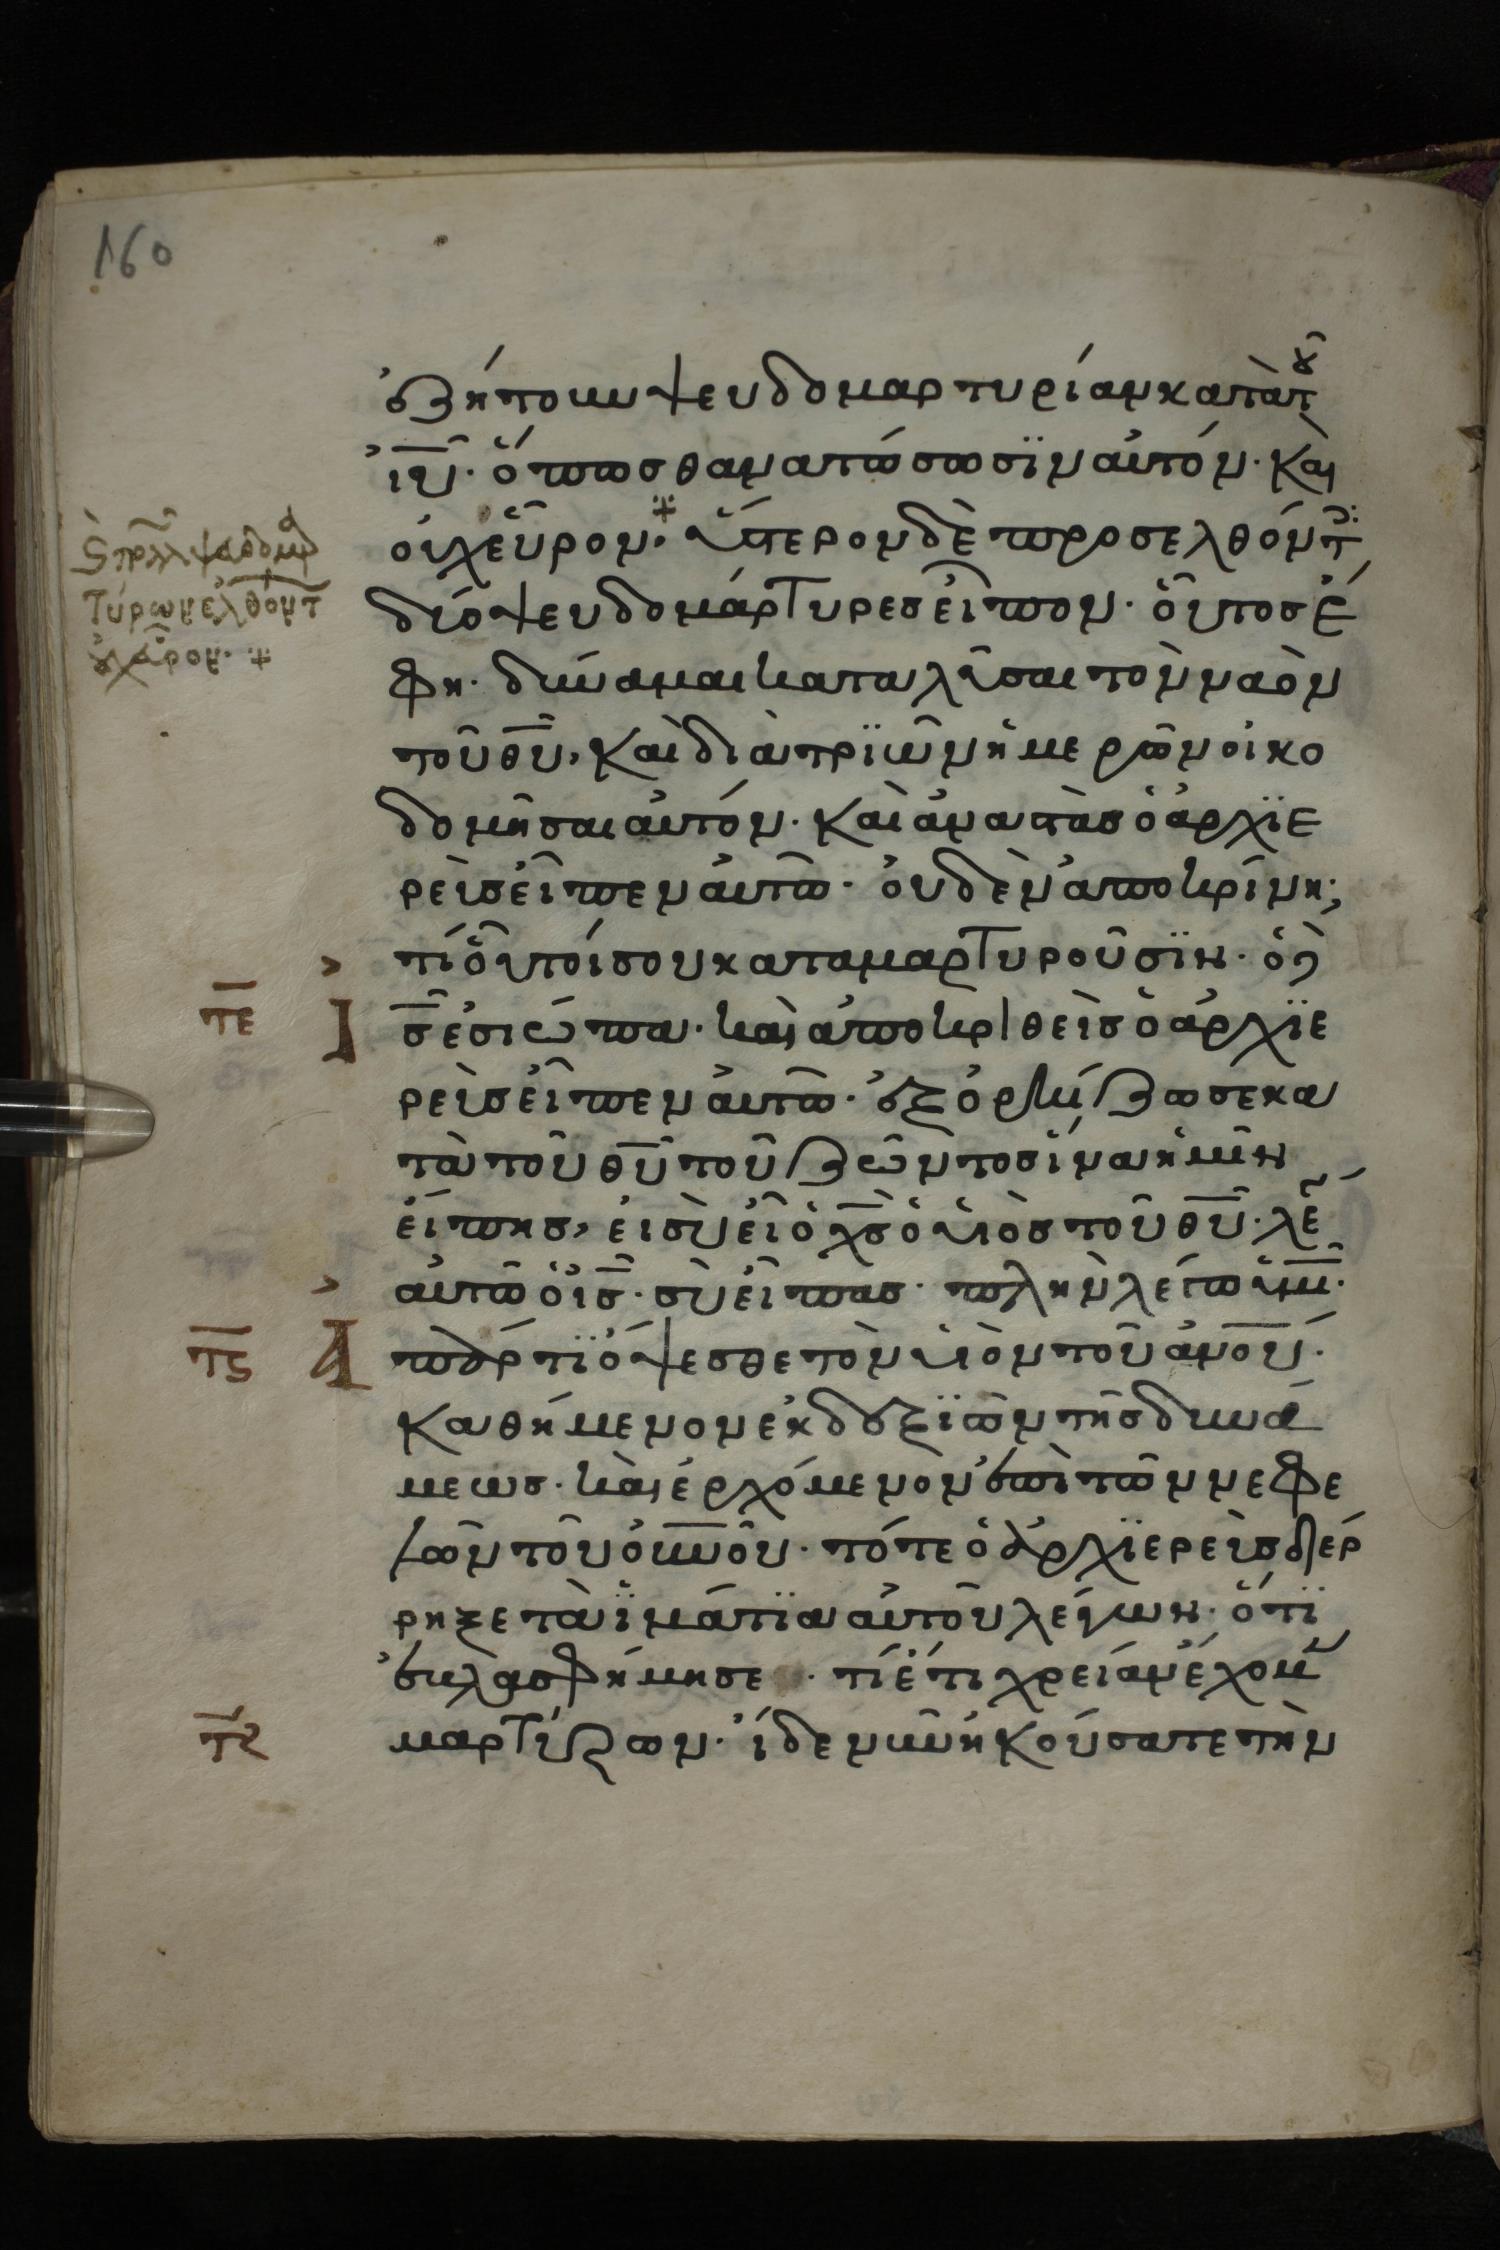 160
ἐζήτουν ψευδομαρτυρίαν κατὰ τοῦ
ἰῦ. ὅπως θανατώσωσϊν αὐτόν. καὶ
οὐχ εὗρον. ὕστερον δὲ προσελθόντ
δύο ψευδομάρτυρες εἶπον. οὗτος ἔ
φη. δύναμαι καταλῦσαι τὸν ναὸν
τοῦ θῦ, καὶ διὰ τρϊῶν ἡμερῶν οἰκο
δομῆσαι αὐτόν. καὶ ἀναστὰς ὁ ἀρχϊε
ρεὺς εἶπεν αὐτῶ. οὐδὲν ἀποκρίνη;
τί οὗτοί σου καταμαρτυροῦσϊν. ὁ δὲ
ῑσ̄ ἐσιώπα. καὶ ἀποκριθεὶς ὁ ἀρχϊε
ρεὺς εἶπεν αὐτῶ. ἐξορκίζω σε κα
τὰ τοῦ θῦ τοῦ ζῶντος ἵνα ἡμῖν
εἴπης, εἰ σὺ εἶ ὁ χς ὁ υἱὸς τοῦ θῦ. λέγ
αὐτῶ ὁ ις. σὺ εἶπας. πλὴν λέγω ὑμῖ.
ἀπάρτϊ ὄψεσθε τὸν υἱὸν τοῦ ἀνοῦ.
καθήμενον ἐκ δεξϊῶν τῆς δυνά
μεως. καὶ ἐρχόμενον ἐπὶ τῶν νεφε
λῶν τοῦ οὐνοῦ. τότε ὁ ἀρχϊερεὺς διέρ
ρηξε τὰ ϊμάτϊα αὐτοῦ λέγων. ὅτϊ
ἐβλασφήμησε. τί ἔτι χρείαν ἔχομεν
μαρτύρων. ἴδε νῦν ἠκούσατε τὴν
ϛ πολλ ψευδομαρ
τύρων ἐλθόντ
οὐχ εὗρον.
τε
τϛ
τζ